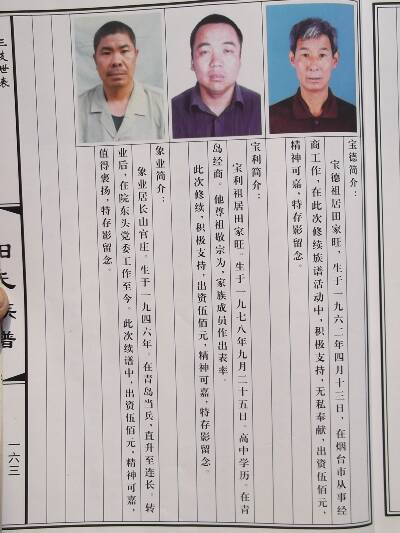 宝德简介：
宝德祖居田家旺，生于一九六二年四月十三日，在烟台市从事经
商工作，在此次修续族谱活动中，积极支持，无私奉献，出资伍佰元，
精神可嘉，特存影留念。
宝利简介：
宝利祖居田家旺。生于一九七八年九月二十五日。高中学历。在青
岛经商。他尊祖敬宗为，家族成员作出表率。
此次修续，积极支持，出资伍佰元，精神可嘉，特存影留念。
象业简介：
象业居长山官庄。生于一九四六年。在青岛当兵，直升至连长。转
业后，在院东头党委工作至今。此次续谱中，出资伍佰元，精神可嘉，
值得褒扬，特存影留念。
三支世表
氏族谱
一六三